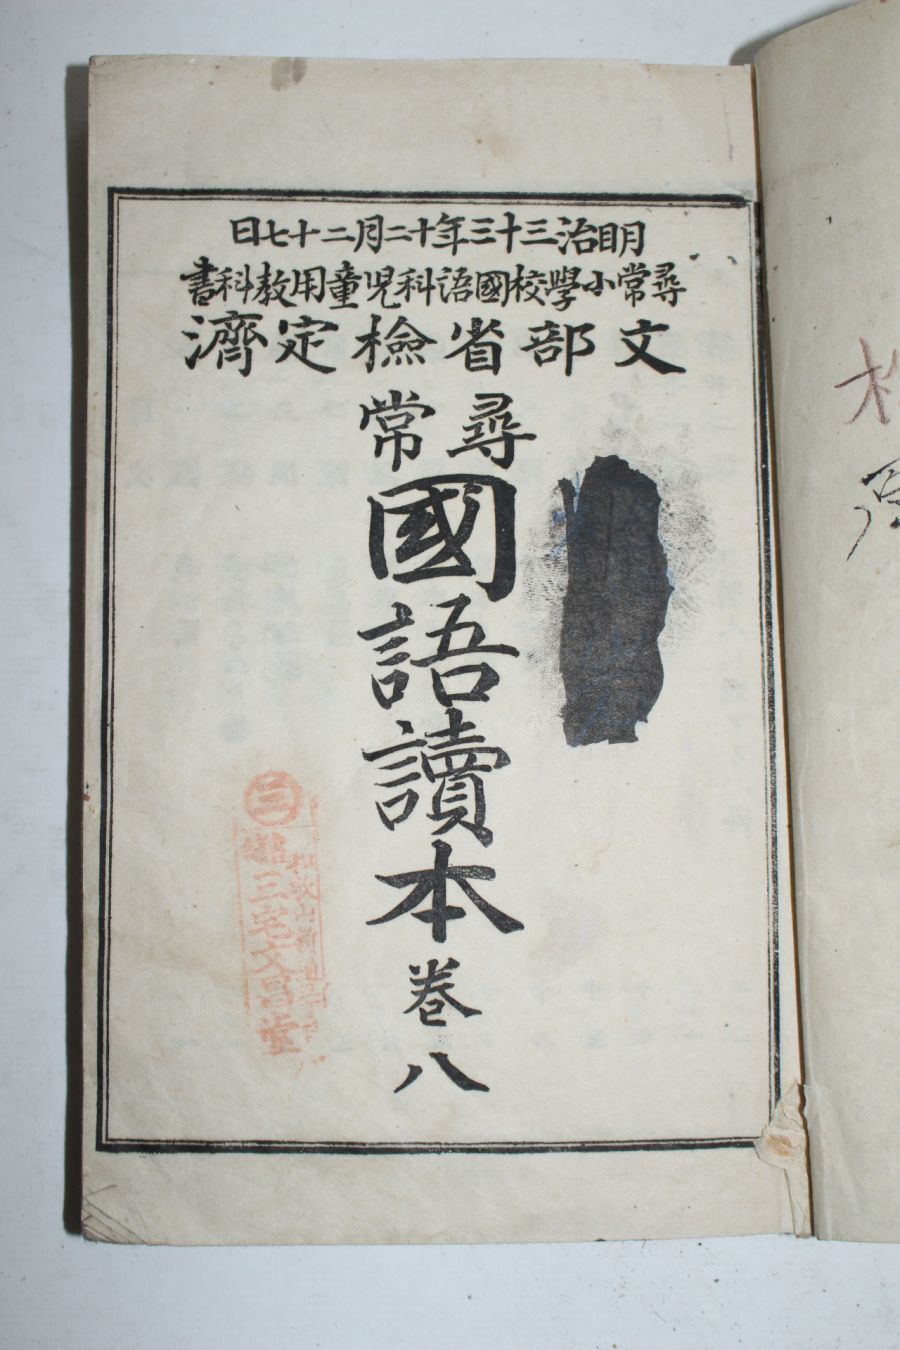 明治三十三年十二月二十七日
尋常小學校國語科児童用教科書
文部省檢定濟
尋常
國語讀本
巻八
三宅文昌堂